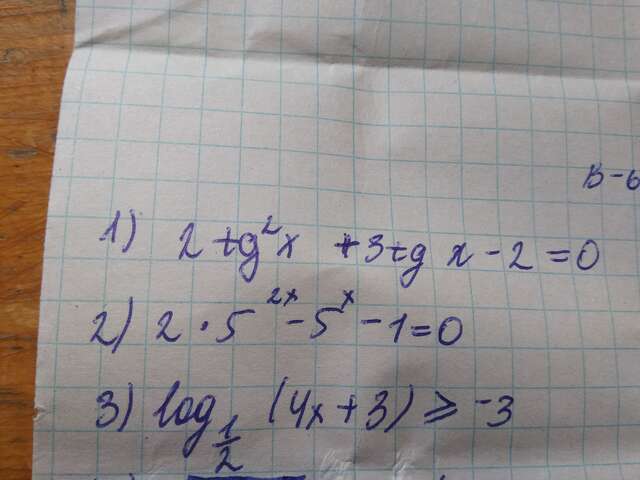 В-6
1) 2 tg²x + 3 tg x - 2 = 0
2) 2 · 5²ˣ - 5ˣ - 1 = 0
3) log_{1/2} (4x + 3) ≥ -3